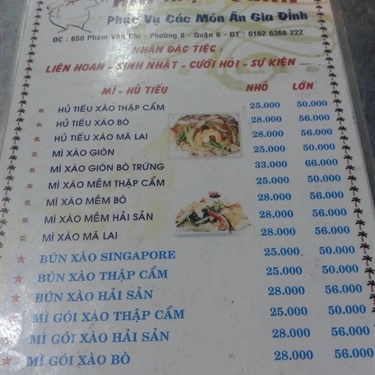 Phục Vụ Các Món Ăn Gia Đình
ĐC : 650 Phạm Văn Chí - Phường 8 - Quận 6 - ĐT : 0162 6368 222
NHẬN ĐẶC TIỆC :
LIÊN HOAN - SINH NHẬT - CƯỚI HỎI - SỰ KIỆN ....
MÌ - HỦ TIẾU NHỎ LỚN
HỦ TIẾU XÀO THẬP CẨM 25.000 50.000
HỦ TIẾU XÀO BÒ 28.000 56.000
HỦ TIẾU XÀO MÃ LAI 28.000 56.000
MÌ XÀO GIÒN 25.000 50.000
MÌ XÀO GIÒN BÒ TRỨNG 33.000 66.000
MÌ XÀO MỀM THẬP CẨM 25.000 50.000
MÌ XÀO MỀM BÒ 28.000 56.000
MÌ XÀO MỀM HẢI SẢN 28.000 56.000
MÌ XÀO MÃ LAI 28.000 56.000
BÚN XÀO SINGAPORE 25.000 50.000
BÚN XÀO THẬP CẨM 25.000 50.000
BÚN XÀO HẢI SẢN 28.000 56.000
MÌ GÓI XÀO THẬP CẨM 25.000 50.000
MÌ GÓI XÀO HẢI SẢN 28.000 56.000
MÌ GÓI XÀO BÒ 28.000 56.000